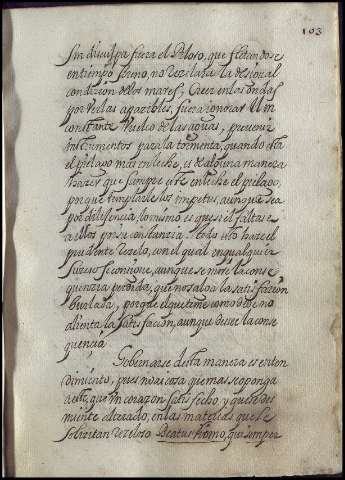 103
Sin disculpa fuera el Piloto, que fiandose
en tiempo sereno, no rezelara la desigual
condizion de los mares, Creer en las ondas
por verlas apazibles, fuera ignorar el in
constante vuelco de las aguas, prevenir
instrumentos para la tormenta, quando está
el pielago mas en leche, es de alguna manera
hazer que siempre esté en leche el pielago,
porque templarle los impetus, aunque sea
por diligencia, lo mismo es que si el faltase
a ellos por inconstanzia. todo esto haze el
prudente rezelo, con el qual en qualquier
suceso se conigue, aunque se mire la conse
quenzia perdida, que no salga la satisfacion
burlada, porque el que teme como debe no
alienta la satisfacion, aunque desee la conse
quencia.
Gobernarse desta manera es enten
dimiento, pues no ai cosa que mas se oponga
a este, que un corazon satisfecho, y que se des
miente alterado, en las materias que le
solizitan rezeloso. Beatus Homo, qui semper